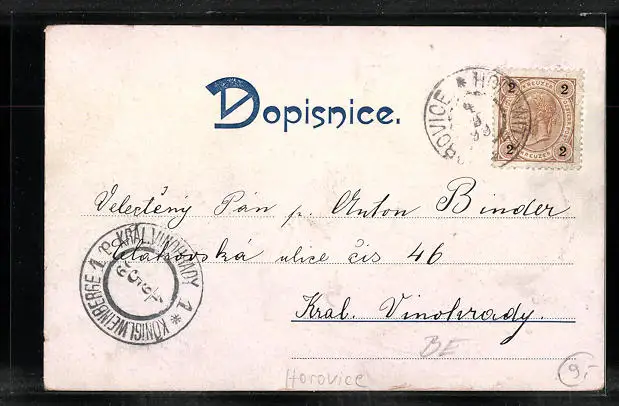 Dopisnice.
HOŘOVICE * HOŘOWITZ
2 KREUZER 2
2 2
Velectěný Pán p. Anton Binder
ulice čis 46
Král. Vinohrady.
P. KRÁL. VINOHRADY 1 * KÖNIGL. WEINBERGE 1
BE
Horovice
9.-